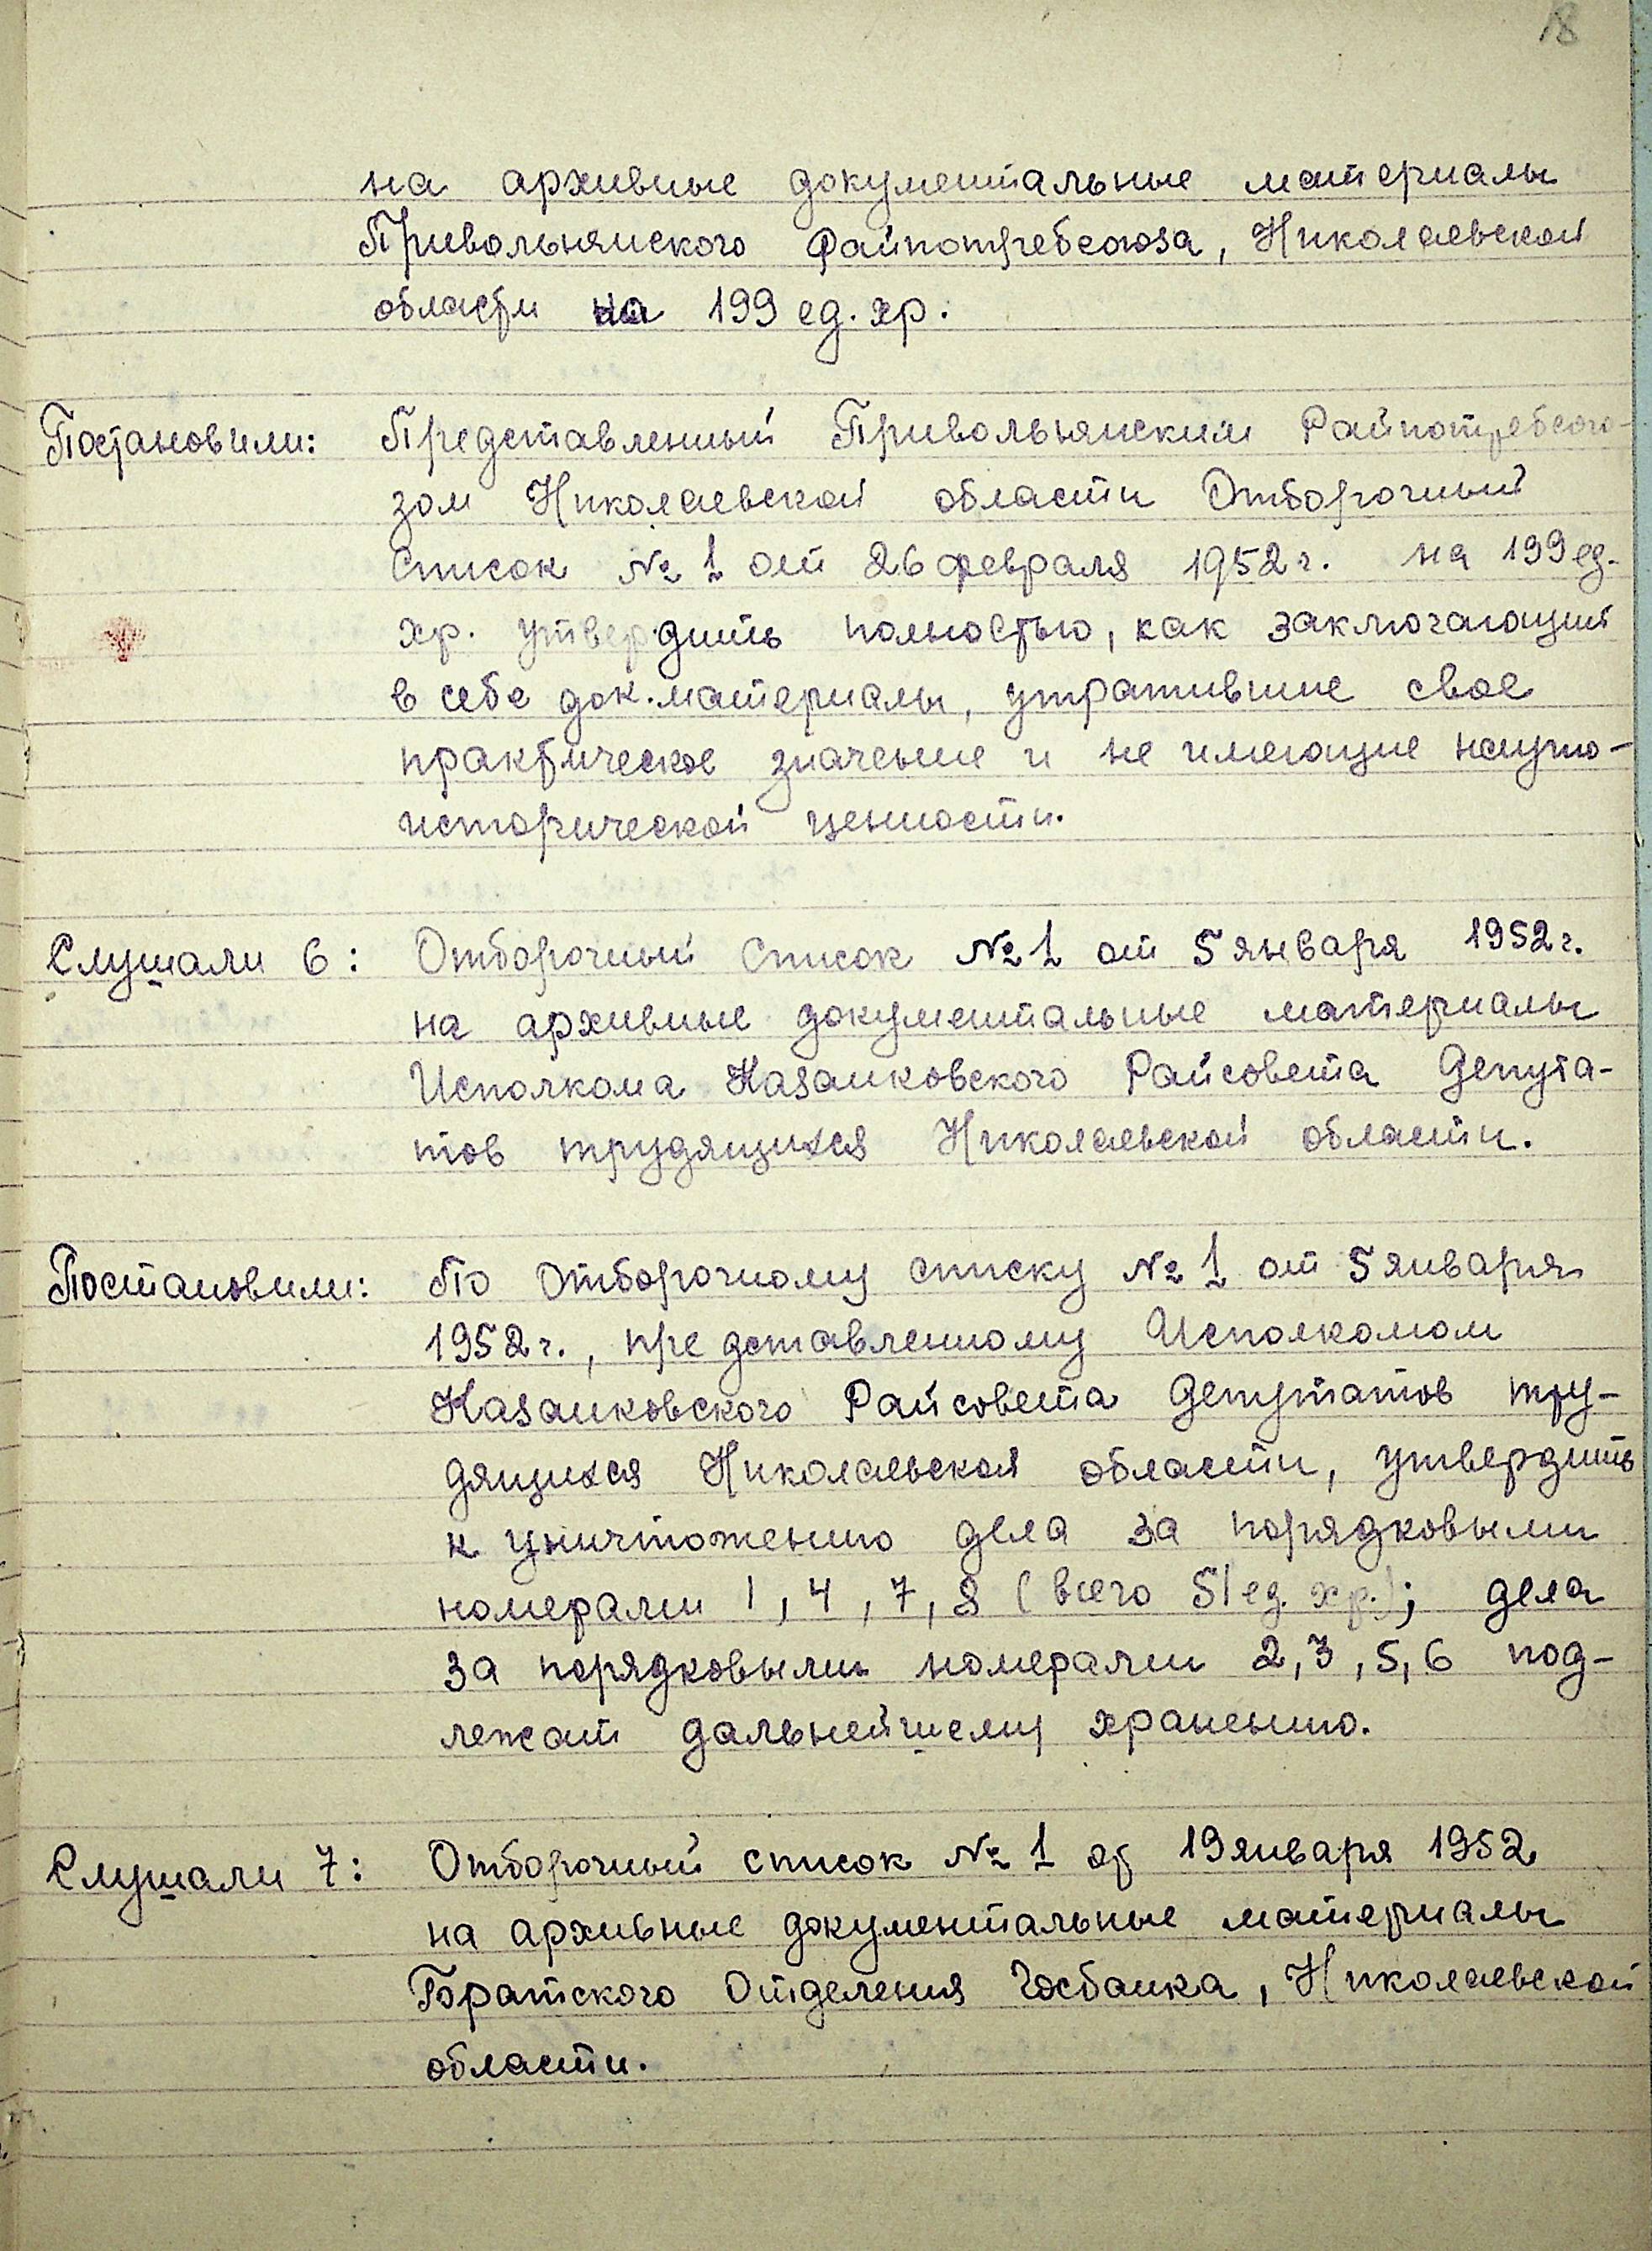 18
на архивные документальные материалы
Привольнянского Райпотребсоюза, Николаевской
области на 199 ед. хр.
Постановили: Представленный Привольнянским Райпотребсою-
зом Николаевской области Отборочный
список № 1 от 26 февраля 1952 г. на 199 ед.
хр. утвердить полностью, как заключающий
в себе док. материалы, утратившие свое
практическое значение и не имеющие научно-
исторической ценности.
Слушали 6: Отборочный список № 1 от 5 января 1952 г.
на архивные документальные материалы
Исполкома Казанковского Райсовета Депута-
тов трудящихся Николаевской области.
Постановили: По Отборочному списку № 1 от 5 января
1952 г., представленному Исполкомом
Казанковского Райсовета Депутатов тру-
дящихся Николаевской области, утвердить
к уничтожению дела за порядковыми
номерами 1, 4, 7, 8 (всего 51 ед. хр.); дела
за порядковыми номерами 2, 3, 5, 6 под-
лежат дальнейшему хранению.
Слушали 7: Отборочный список № 1 от 19 января 1952
на архивные документальные материалы
Братского Отделения Госбанка, Николаевской
области.